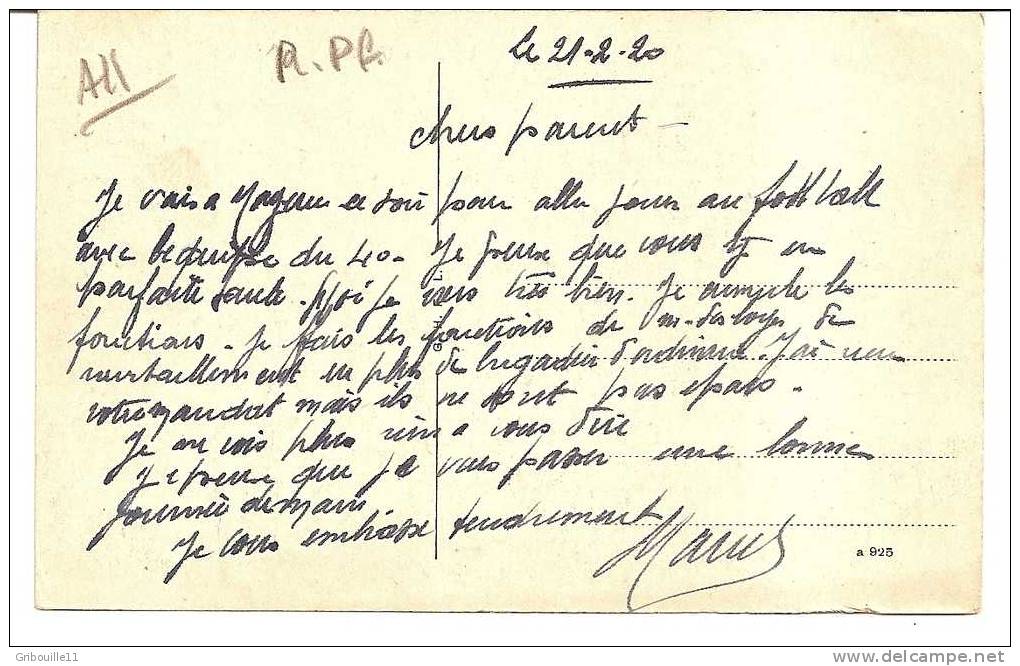 All
R. P. F.
le 21-2-20
chers parent -
Je vais a ce soir pour aller jouer au foot ball
avec l'equipe du 40. Je pense que vous ty en
parfaite sante. Moi je vais très bien. Je cumule les
fonctions. Je fais les fonctions de m-des-logis de
en plus de brigadier d'ordinaire. J'ai recu
votre mandat mais ils ne sont pas epais.
Je ne vois plus rien a vous dire
J espere que je vais passer une bonne
journée demain
Je vous embrasse tendrement
Marcel
a 925
Gribouille11
delcampe.net